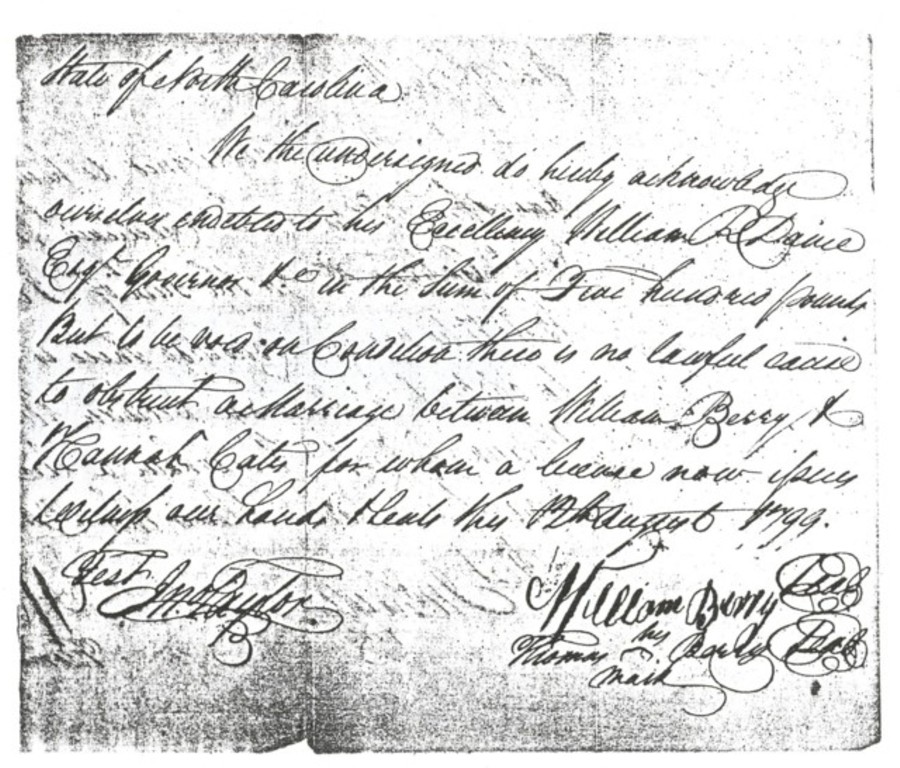 State of North Carolina
We the undersigned do hereby acknowledge
ourselves indebted to his Excellency William R Davie
Esqr. Governor &c in the Sum of Five hundred pounds
But to be void on Condition there is no lawful cause
to obstruct a Marriage between William Berry &
Hannah Cates for whom a license now issues
Witness our hands & seals this 12th August 1799.
Test
Jno Taylor
William Berry Seal
his
Thomas Seal
mark